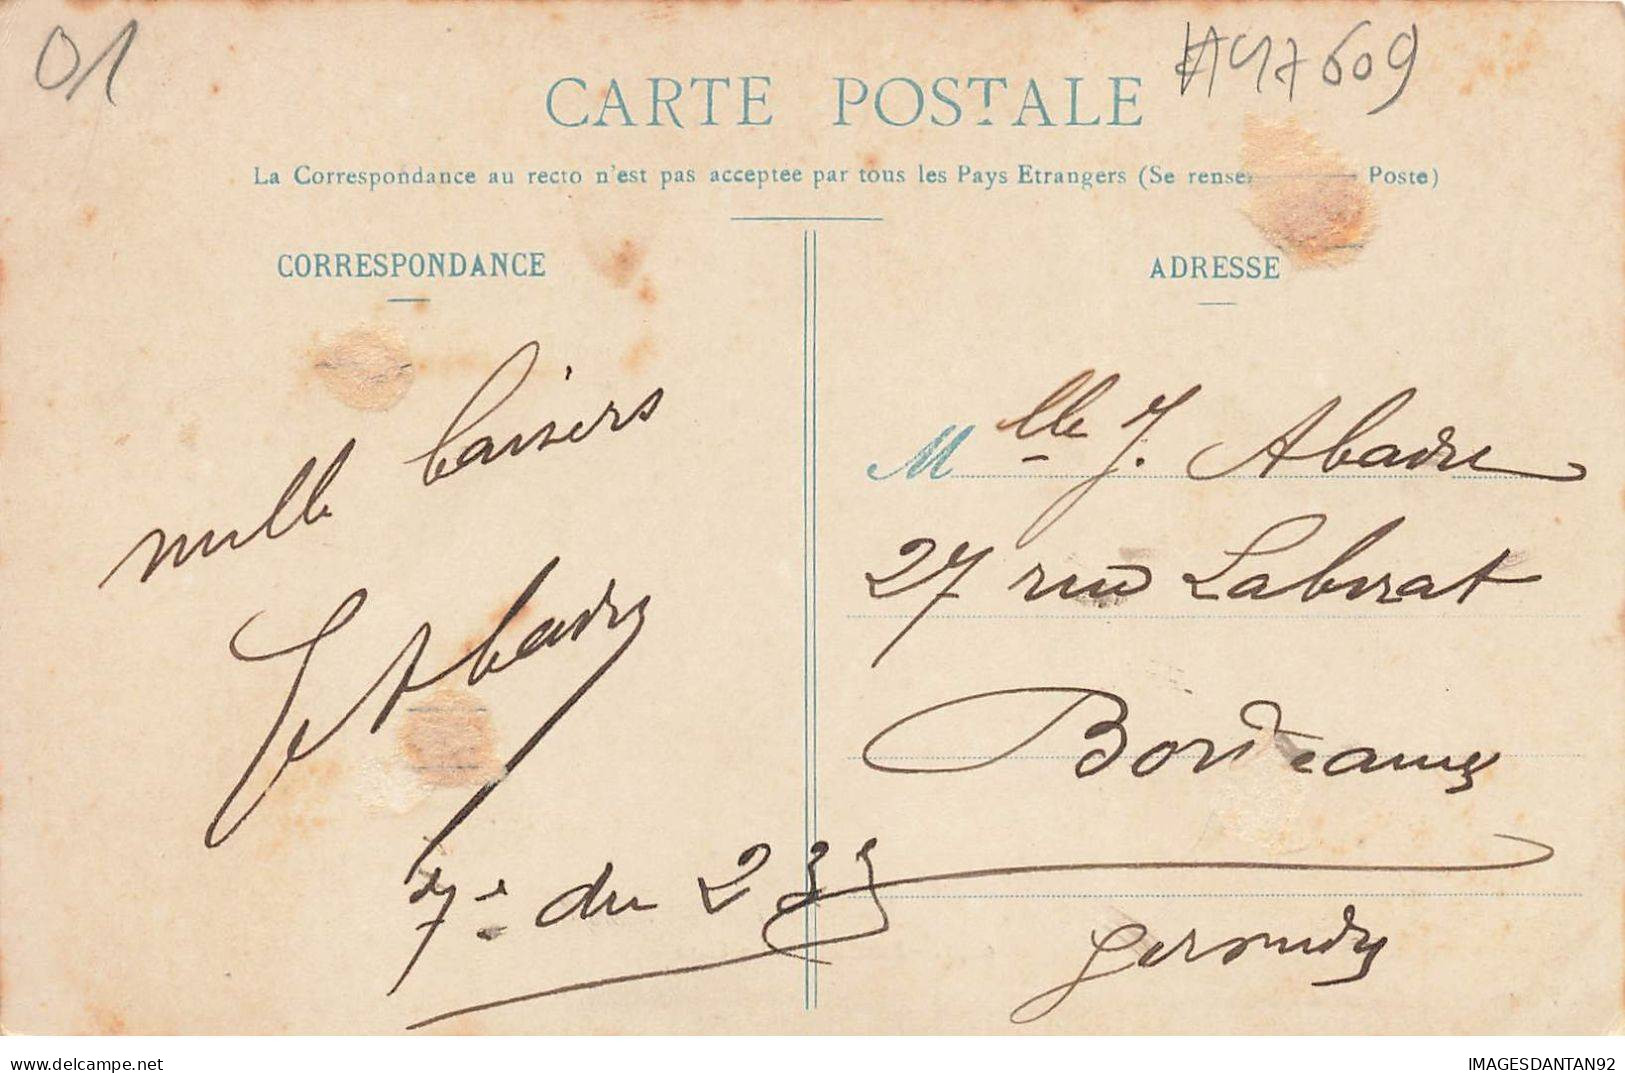 01
#A47609
CARTE POSTALE
La Correspondance au recto n'est pas acceptée par tous les Pays Etrangers (Se rense Poste)
CORRESPONDANCE
mille baisers
Abadie
7e du 233
ADRESSE
Mlle J. Abadie
27 rue Labirat
Bordeaux
Gironde
delcampe.net
IMAGESDANTAN92